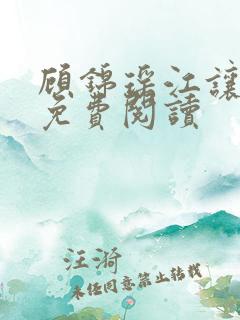 顾錦瑶江讓
免費閱讀
汪漪
未经同意禁止转载